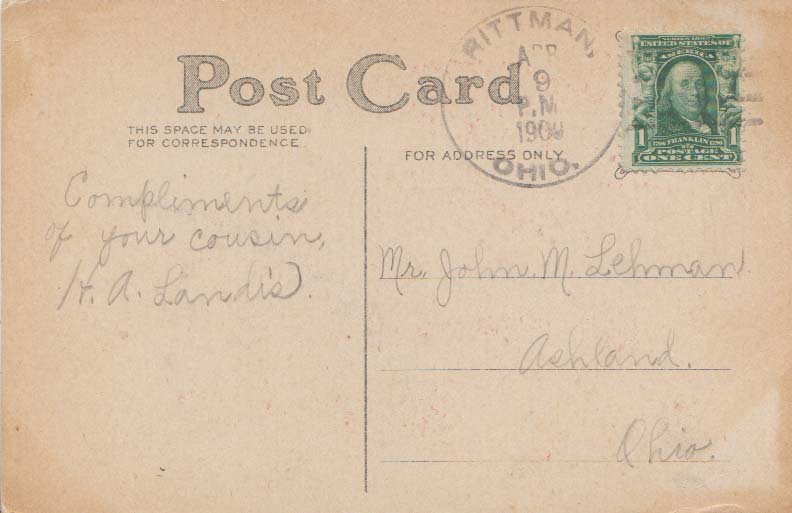 Post Card
THIS SPACE MAY BE USED
FOR CORRESPONDENCE
FOR ADDRESS ONLY
RITTMAN,
APR
9
P.M
OHIO.
UNITED STATES OF
AMERICA
1 1706 FRANKLIN 1790 1
POSTAGE
ONE CENT
Compliments
of your cousin,
H. A. Landis.
Mr. John M. Lehman
Ashland.
Ohio.